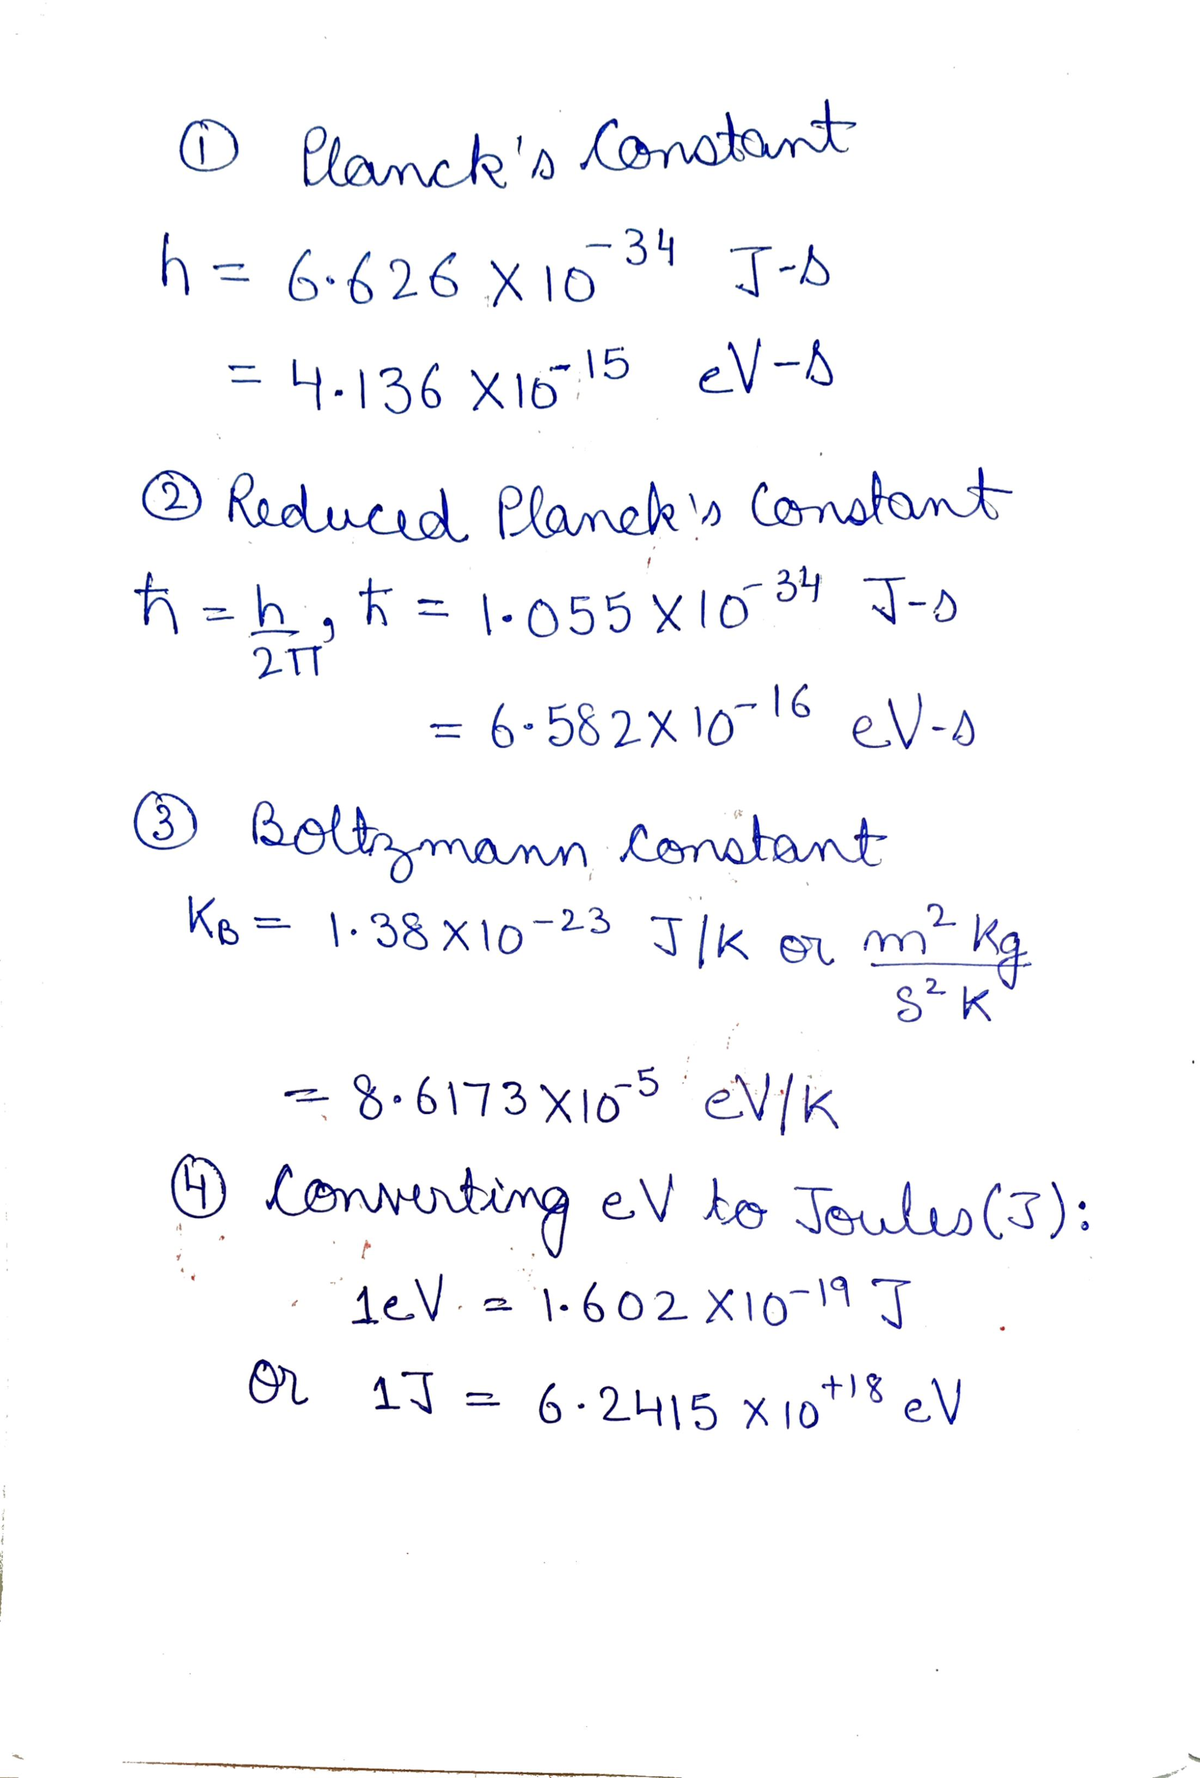 ① Planck's Constant
h = 6.626 × 10⁻³⁴ J-s
= 4.136 × 10⁻¹⁵ eV-s
② Reduced Planck's Constant
ħ = h/2π, ħ = 1.055 × 10⁻³⁴ J-s
= 6.582 × 10⁻¹⁶ eV-s
③ Boltzmann constant
K_B = 1.38 × 10⁻²³ J/K or m² Kg/s² K
= 8.6173 × 10⁻⁵ eV/K
④ Converting eV to Joules (J):
1eV = 1.602 × 10⁻¹⁹ J
Or 1J = 6.2415 × 10⁺¹⁸ eV